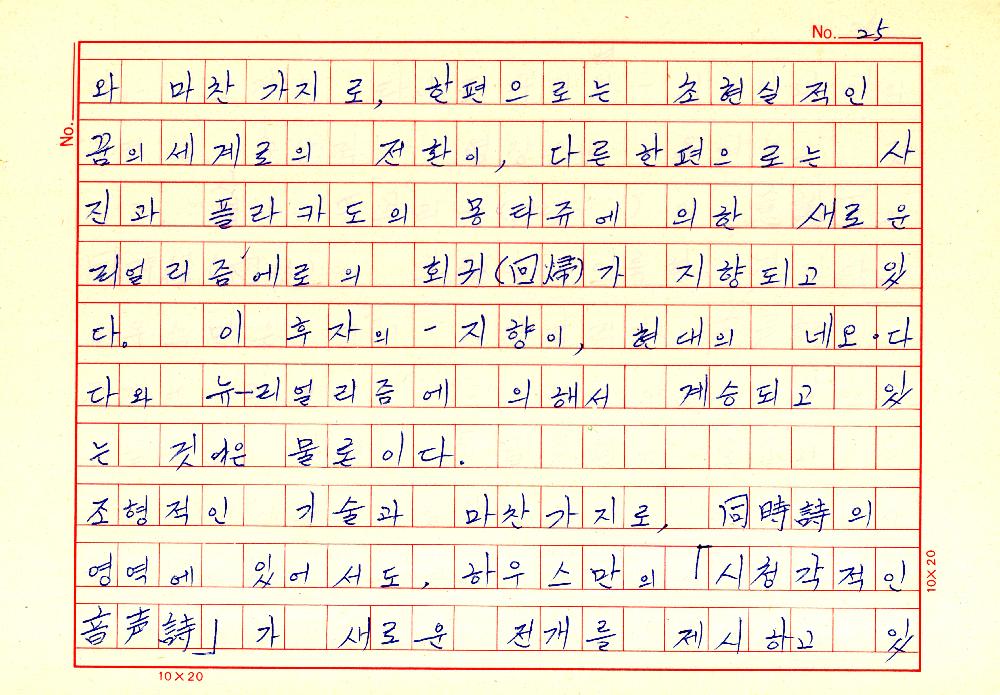 No. 25
No.
와 마찬 가지로, 한편으로는 초현실적인
꿈의 세계로의 전환이, 다른한편으로는 사
진과 플라카도의 몽타쥬에 의한 새로운
리얼리즘에로의 회귀(回帰)가 지향되고 있
다. 이 후자의 - 지향이, 현대의 네오·다
다와 뉴-리얼리즘에 의해서 계승되고 있
는 것은 물론이다.
조형적인 기술과 마찬가지로, 同時詩의
영역에 있어서도, 하우스만의 「시청각적인
音声詩」가 새로운 전개를 제시하고 있
10×20
10×20